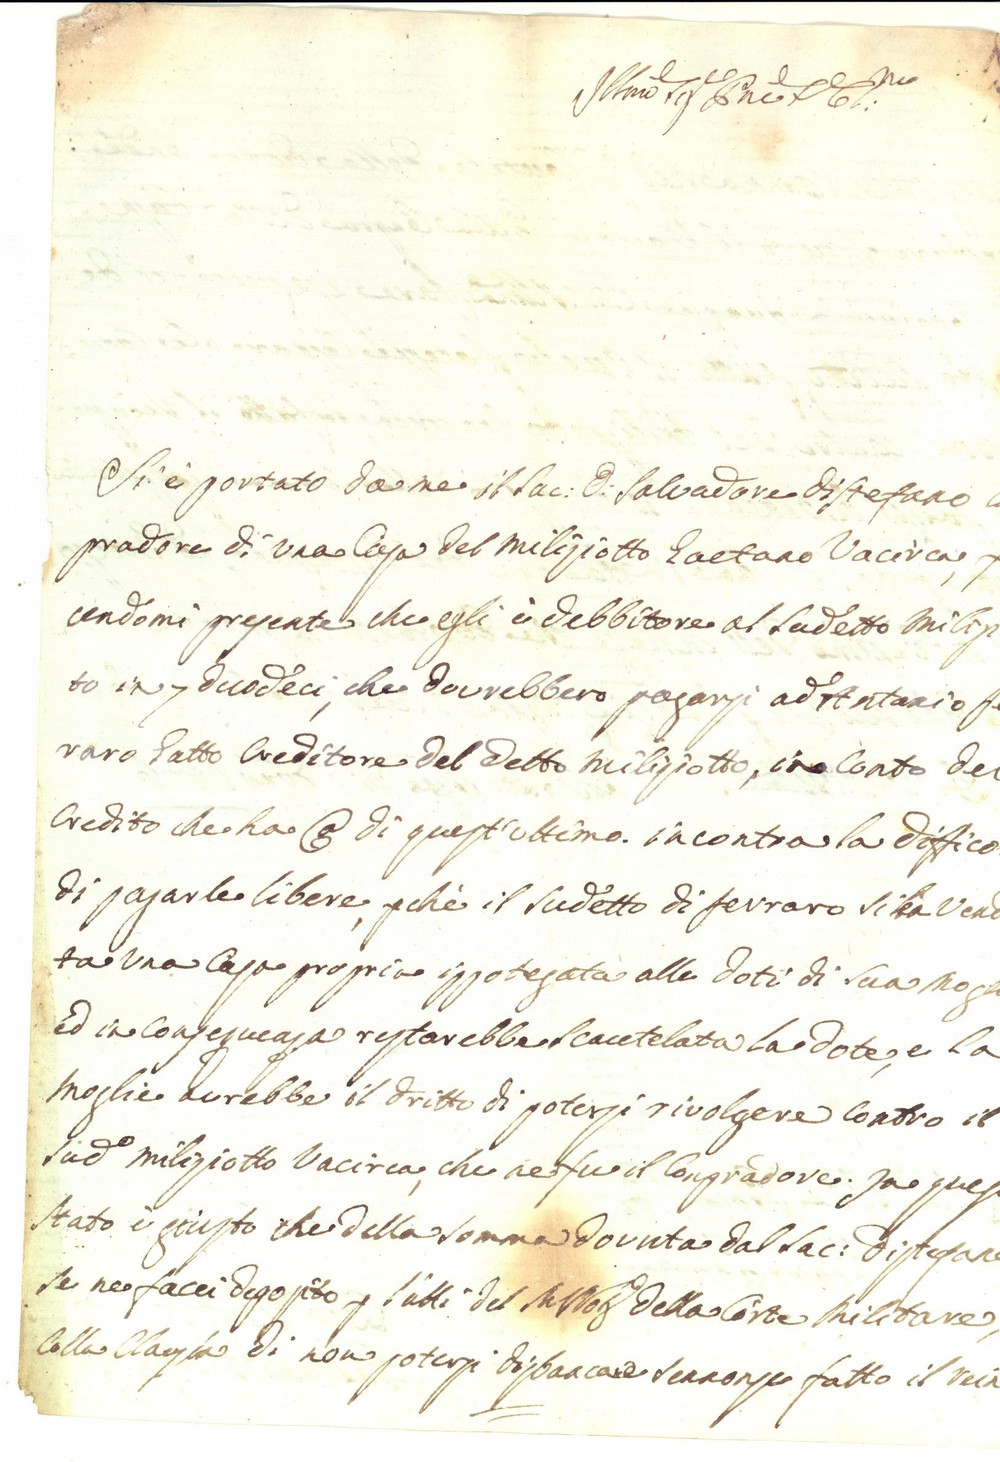 Si è portato da me il Sac: D: Salvadore Distefano
pradore di una Casa del Milisiotto Gaetano Vacirca,
cendomi presente che egli è debbitore al Sudetto Milisi
to in duodeci, che dovrebbero pagarsi ad Antonio fe
raro Gatto Creditore del detto Milisiotto, in Conto del
Credito che ha di quest'ultimo. incontra la diffico
di pagarle libere, pchè il sudetto di ferraro si ha vend
ta una Casa propria ippotegata alle doti di Sua Mogli
Ed in conseguenza restarebbe Scautelata la dote, e la
Moglie aurebbe il dritto di potersi rivolgere contro il
Sudo Milisiotto Vacirca, che ne fu il Conpradore. In quest
Stato è giusto che della Somma dovuta dal Sac: Distefano
Se ne facci deposito p l'atti del della Corte Militare,
Colla Clausula di non potersi disbancare sennonse fatto il rein